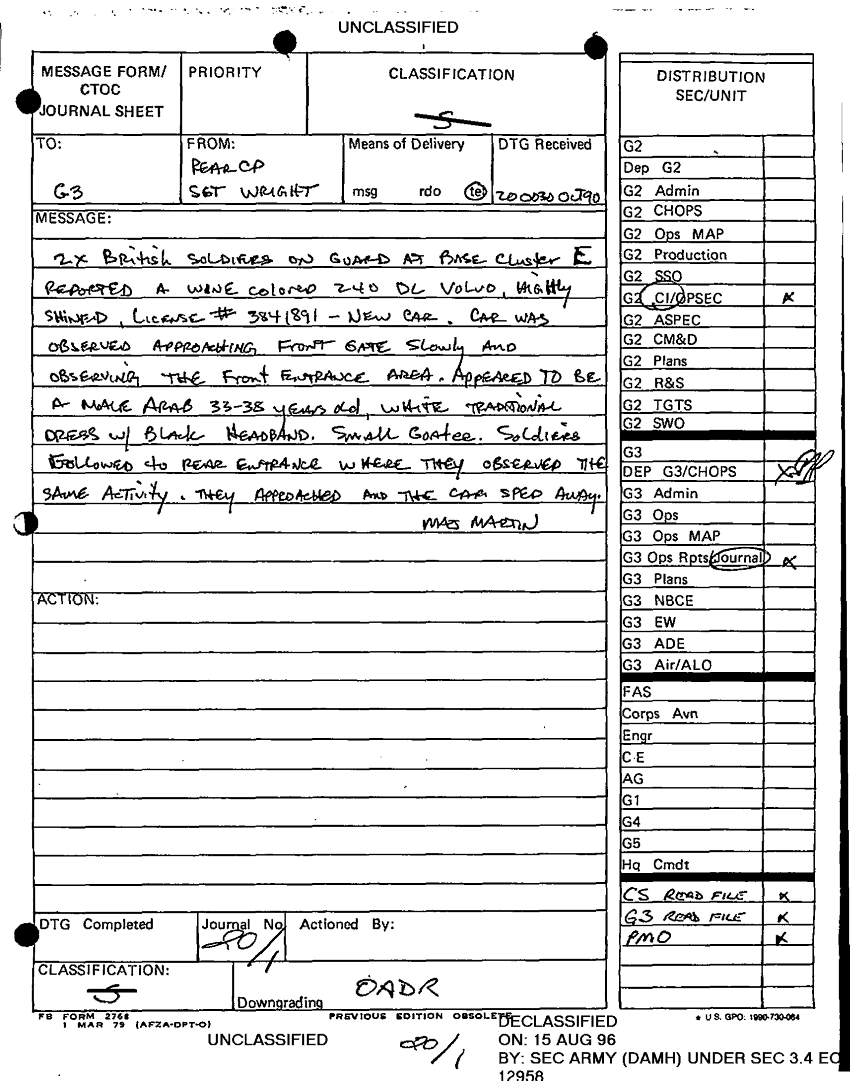 UNCLASSIFIED
MESSAGE FORM/
CTOC
JOURNAL SHEET
PRIORITY
CLASSIFICATION
S
TO:
G3
FROM:
REAR CP
SGT WRIGHT
Means of Delivery
msg rdo tel
DTG Received
200030 OCT90
MESSAGE:
2X British SOLDIERS ON GUARD AT BASE Cluster E
REPORTED A WINE colored 240 DL VOLVO, HIGHLY
SHINED, LICENSE # 3841891 - NEW CAR. CAR WAS
OBSERVED APPROACHING FRONT GATE Slowly AND
OBSERVING THE Front ENTRANCE AREA. APPEARED TO BE
A MALE ARAB 33-38 YEARS old, WHITE TRADITIONAL
DRESS W/ BLACK HEADBAND. SMALL GOATEE. SOLDIERS
FOLLOWED to REAR ENTRANCE WHERE THEY OBSERVED THE
SAME ACTIVITY. THEY APPROACHED AND THE CAR SPED AWAY.
MAJ MARTIN
ACTION:
DTG Completed
Journal No
20/1
Actioned By:
CLASSIFICATION:
S
Downgrading
OADR
FB FORM 2768
1 MAR 79 (AFZA-DPT-O)
PREVIOUS EDITION OBSOLETE
DISTRIBUTION
SEC/UNIT
G2
Dep G2
G2 Admin
G2 CHOPS
G2 Ops MAP
G2 Production
G2 SSO
G2 CI/OPSEC X
G2 ASPEC
G2 CM&D
G2 Plans
G2 R&S
G2 TGTS
G2 SWO
G3
DEP G3/CHOPS X
G3 Admin
G3 Ops
G3 Ops MAP
G3 Ops Rpts/Journal X
G3 Plans
G3 NBCE
G3 EW
G3 ADE
G3 Air/ALO
FAS
Corps Avn
Engr
C-E
AG
G1
G4
G5
Hq Cmdt
CS READ FILE X
G3 READ FILE X
PMO X
* U.S. GPO: 1990-730-064
UNCLASSIFIED
20/1
DECLASSIFIED
ON: 15 AUG 96
BY: SEC ARMY (DAMH) UNDER SEC 3.4 EO
12958